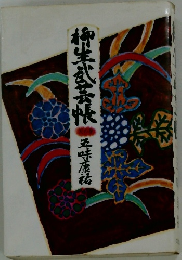 柳生武芸帳
五味康祐